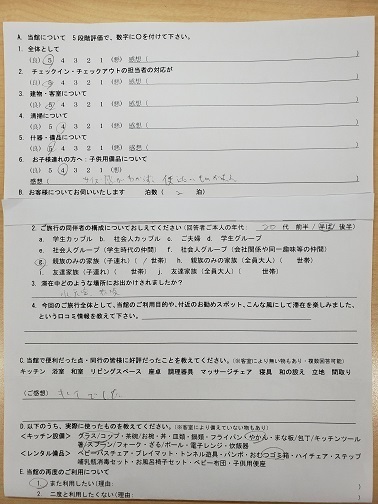 A. 当館について 5段階評価で、数字に〇を付けて下さい。
1. 全体として
(良) 5 4 3 2 1 (悪) 感想 ( )
2. チェックイン・チェックアウトの担当者の対応が
(良) 5 4 3 2 1 (悪) 感想 ( )
3. 建物・客室について
(良) 5 4 3 2 1 (悪) 感想 ( )
4. 清掃について
(良) 5 4 3 2 1 (悪) 感想 ( )
5. 什器・備品について
(良) 5 4 3 2 1 (悪) 感想 ( )
6. お子様連れの方へ:子供用備品について
(良) 5 4 3 2 1 (悪)
感想 (
B. お客様についてお伺いいたします 泊数 ( 2 泊)
2. ご旅行の同伴者の構成についておしえてください (回答者ご本人の年代: 20 代 前半 / 半ば / 後半)
a. 学生カップル b. 社会人カップル c. ご夫婦 d. 学生グループ
e. 社会人グループ (学生時代の仲間) f. 社会人グループ (会社関係や同一趣味等の仲間)
g. 親族のみの家族 (子連れ) ( / 世帯) h. 親族のみの家族 (全員大人) ( 世帯)
i. 友達家族 (子連れ) ( 世帯) j. 友達家族 (全員大人) ( 世帯)
3. 滞在中どのような場所にお出かけされましたか?
4. 今回のご旅行全体として、当館のご利用目的や、付近のお勧めスポット、こんな風にして滞在を楽しみました、
という口コミ情報を教えて下さい。
C. 当館で便利だった点・同行の皆様に好評だったことを教えてください。(※客室により無い物もあり・複数回答可能)
キッチン 浴室 和室 リビングスペース 座卓 調理器具 マッサージチェア 寝具 和の設え 立地 間取り
(ご感想)
D. 以下のうち、実際に使ったものを教えてください。(※客室により備えていない物もあり)
<キッチン設備> グラス/コップ・茶碗/お椀・丼・皿類・鍋類・フライパン・やかん・まな板/包丁/キッチンツール
箸/スプーン/フォーク・ざる/ボール・電子レンジ・炊飯器
<レンタル備品> ベビーバスチェア・プレイマット・トンネル遊具・バンボ・おむつゴミ箱・ハイチェア・ステップ
哺乳瓶消毒セット・お風呂椅子セット・ベビー布団・子供用便座
E. 当館の再度のご利用について
1. また利用したい(理由: )
2. 二度と利用したくない(理由: )